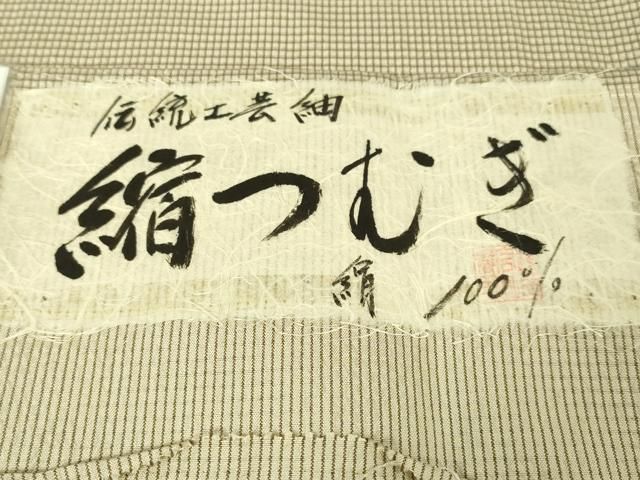 伝統工芸紬
縮つむぎ
絹 100%